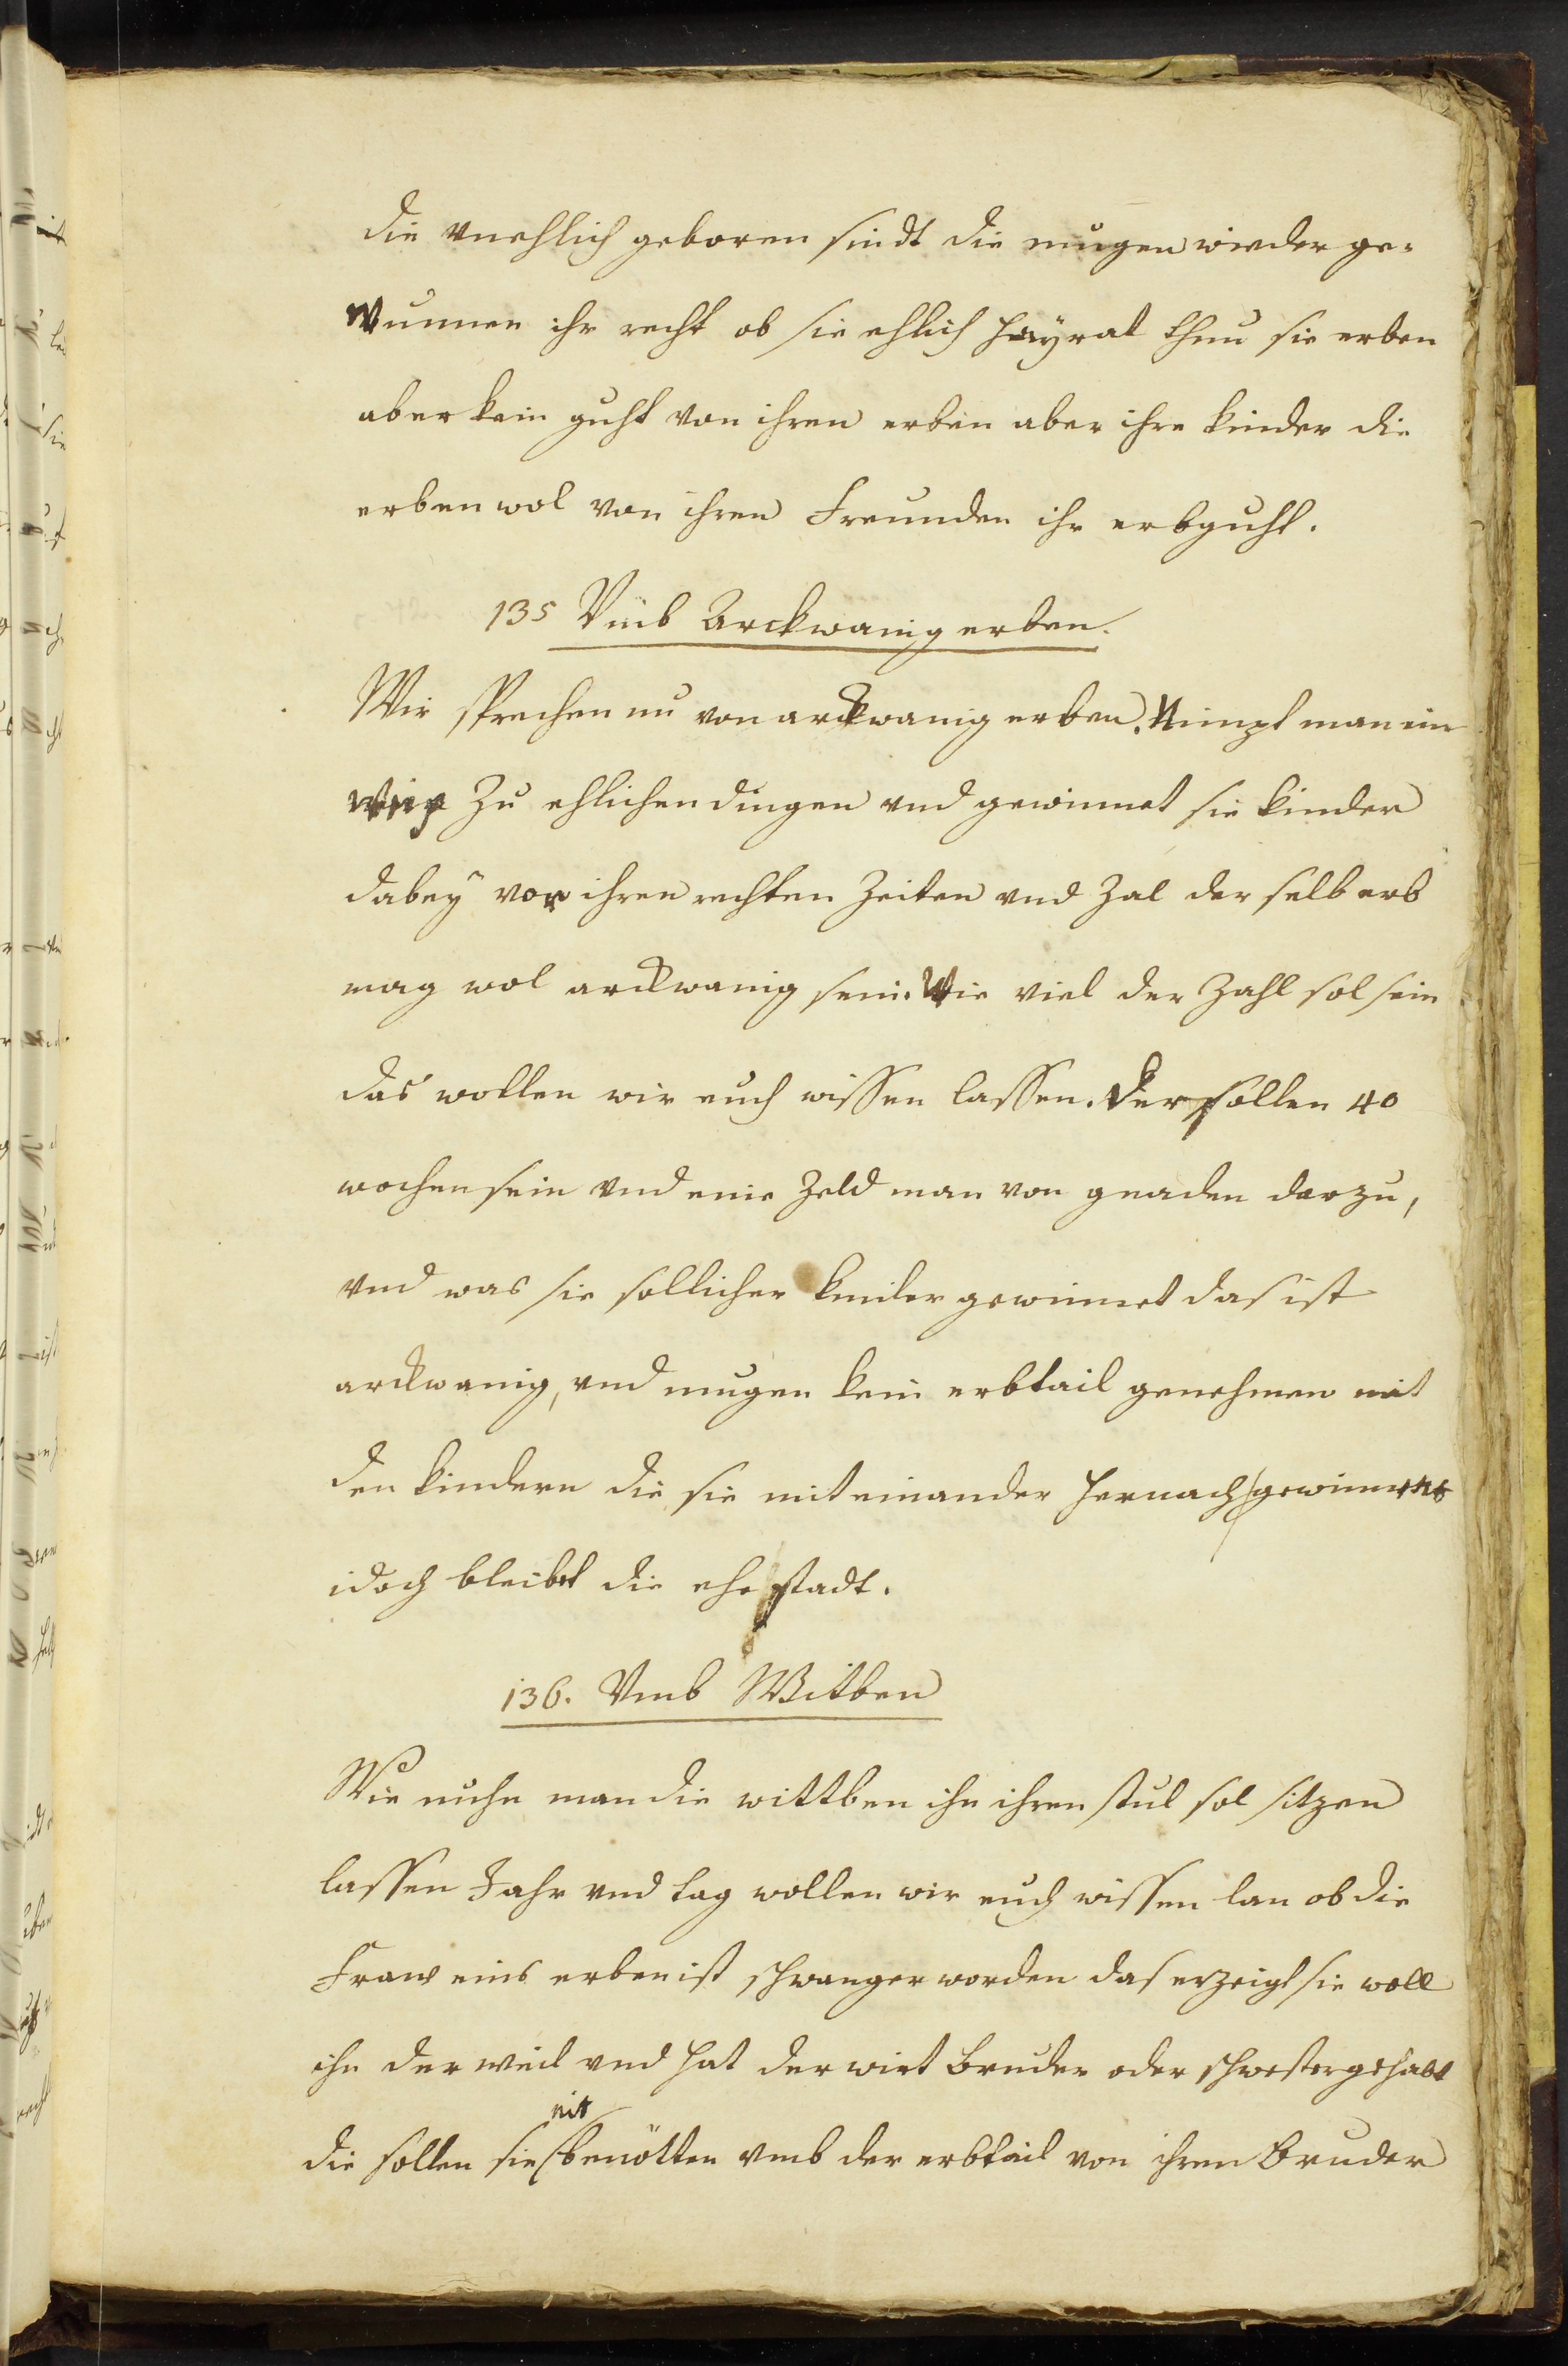 die vnehlich geboren sindt die mugen wieder ge-
wunnen ihr recht ob sie ehlich hayrat thuu sie erben
aber kein guht von ihren erben aber ihre kinder die
erben wol von ihren Freunden ihr erbguht.
135 Vmb Arckwanig erben.
Wir sprechen nu von arckwanig erben. Nimpt man ein
Weip zu ehlichen dingen vnd gewinnet sie kinder
dabey vor ihren rechten Zeiten vnd Zal der selb erb
mag wol arckwanig sein. Wie viel der Zahl sol sein
das wollen wir euch wissen lassen. Der sollen 40
wochen sein vnd eine Zeld man von gnaden darzu,
vnd was sie sollicher kinder gewinnet das ist
arckwanig, vnd mugen kein erbtail genehmen mit
den kindern die sie mit einander hernach gewinnens
idoch bleibet die ehe stadt.
136. Vmb Witben
Wie nuhn man die wittben ihn ihren stul sol sitzen
lassen Jahr vnd tag wollen wir euch wissen lan ob die
Fraw eins erben ist schwanger worden das erzeigt sie woll
ihn der weil vnd hat der wirt bruder oder schwester gehabt
nit
die sollen sie benötten vmb der erbtail von ihren Bruder